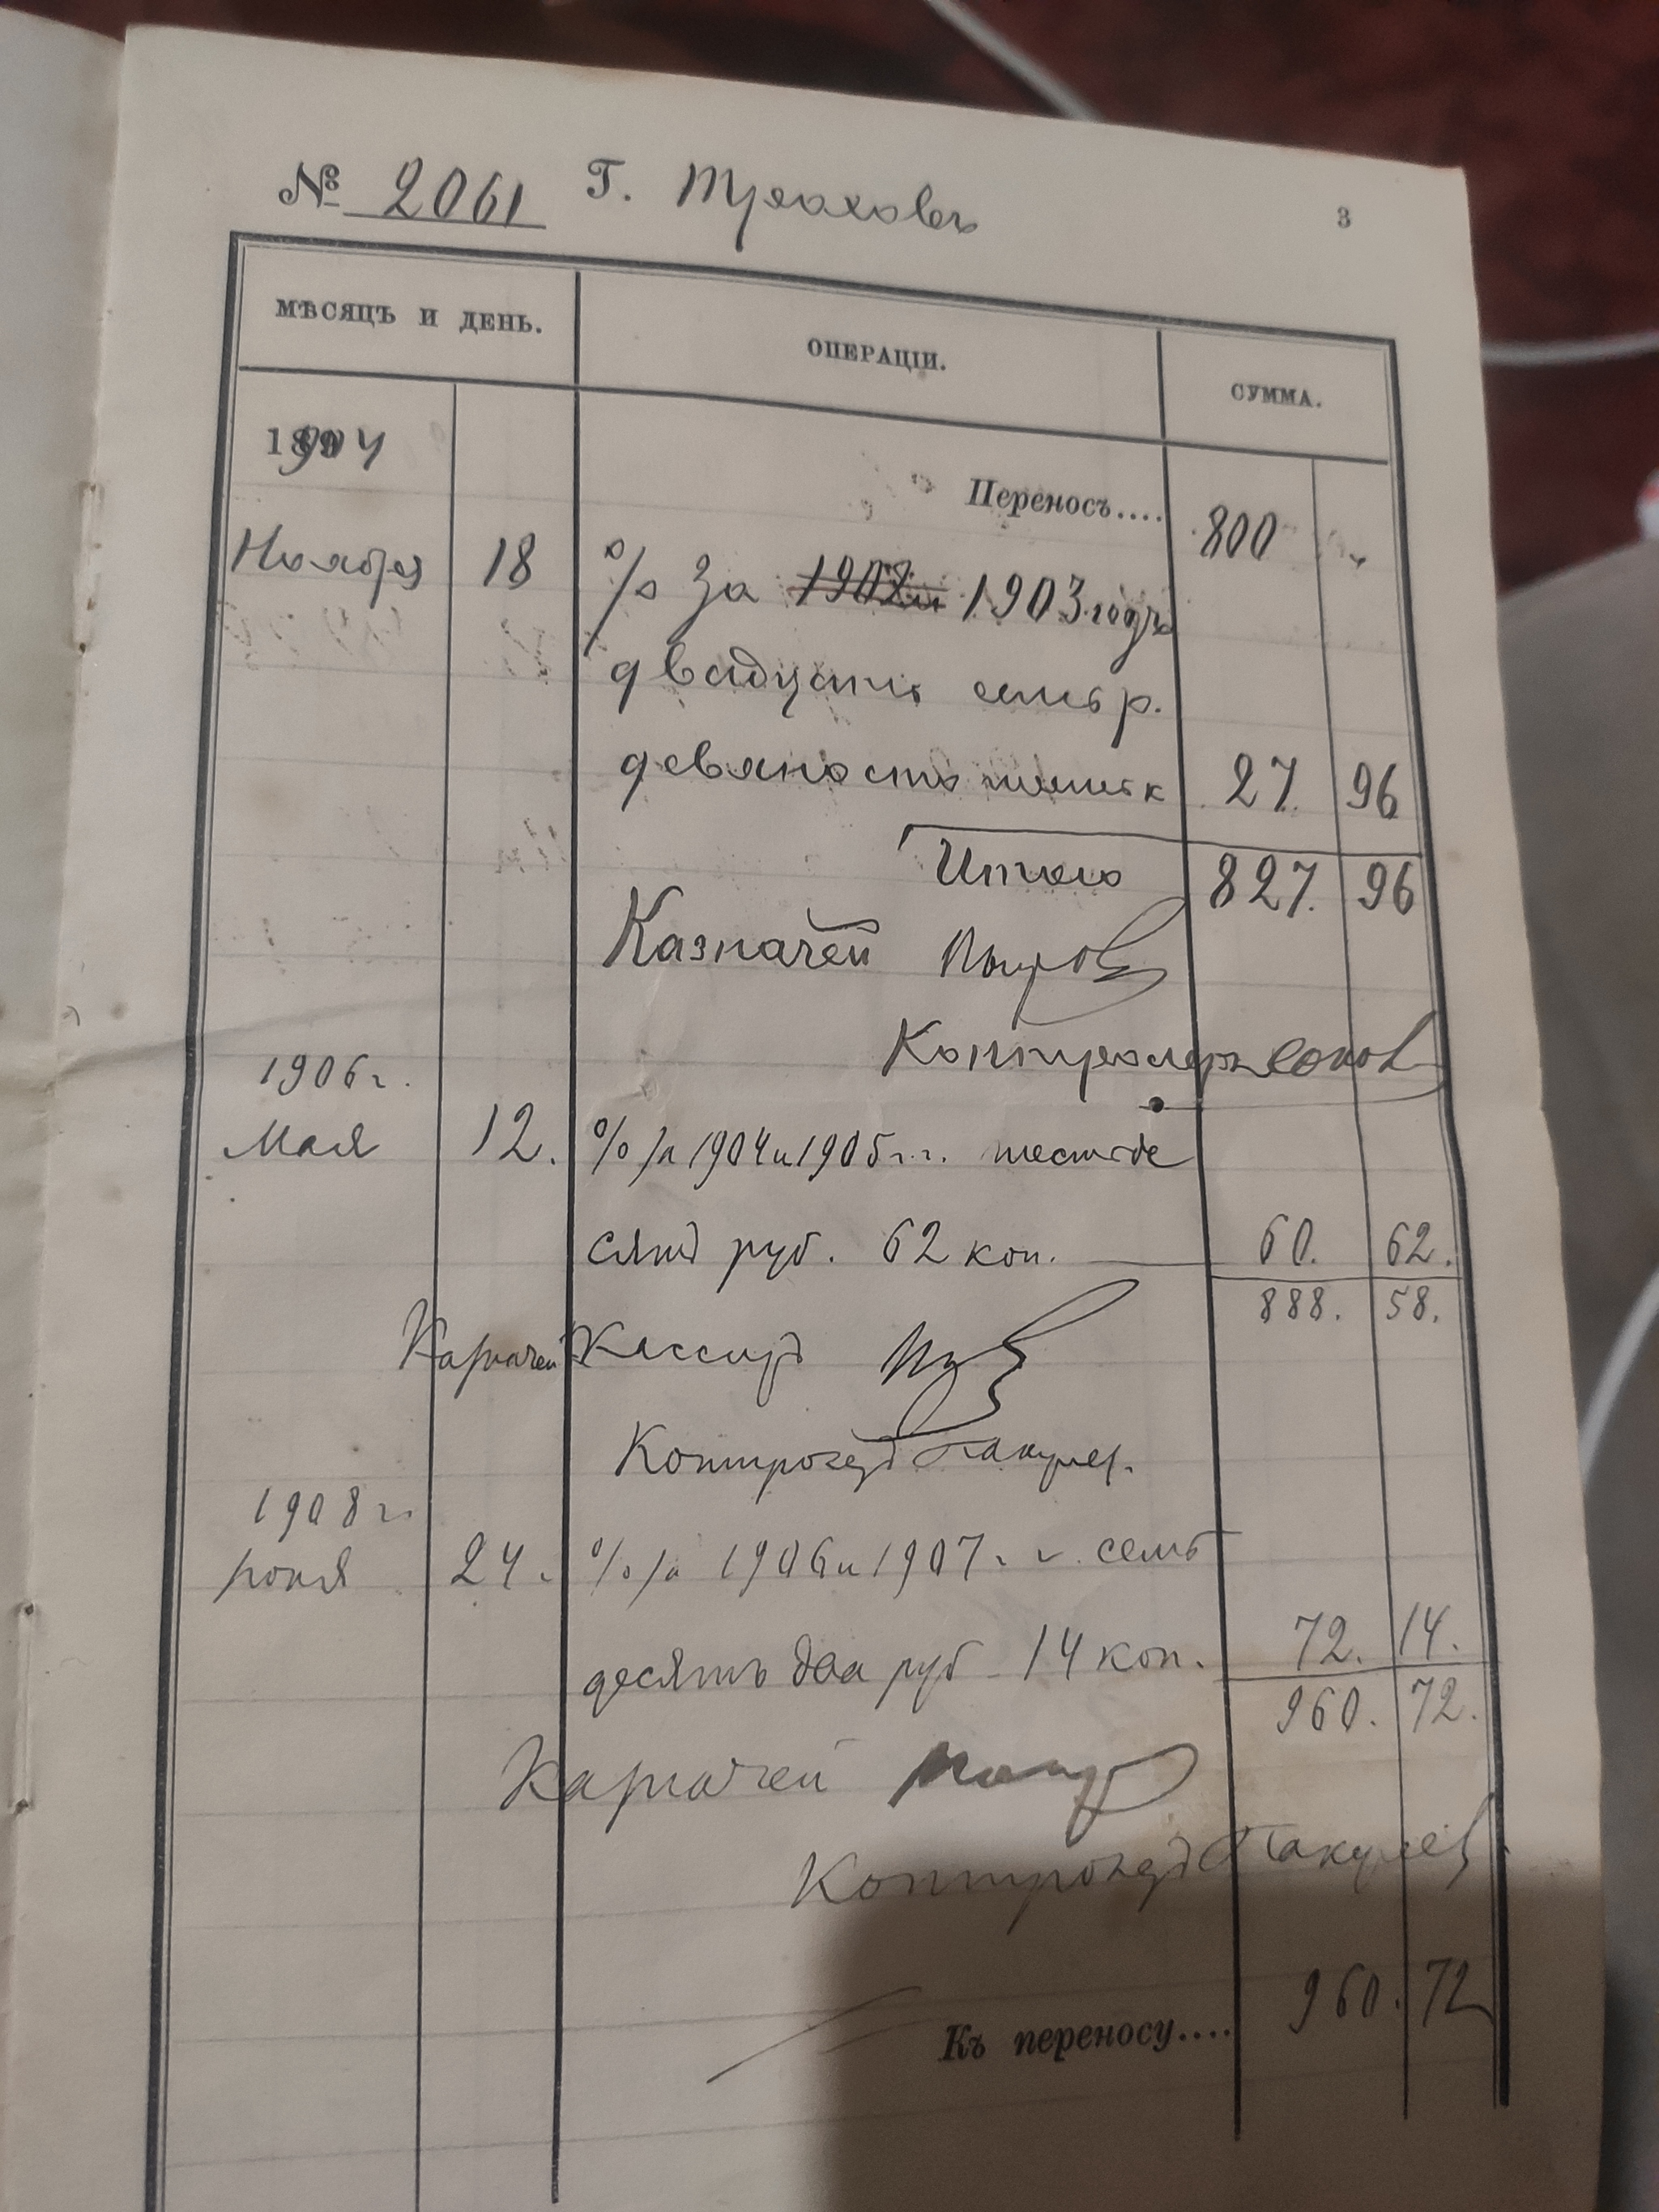 № 2061 Г. 3
МѢСЯЦЪ И ДЕНЬ. ОПЕРАЦІИ. СУММА.
1904
Переносъ.... 800
Ноября 18 % за 1902 и 1903 годъ
двадцать семь р.
девяносто шесть к 27. 96
Итого 827. 96
Казначей
Контролеръ
1906 г.
Мая 12. % за 1904 и 1905 г.г. шестьде
сятъ руб. 62 коп. 60. 62.
888. 58.
Казначей Кассиръ
Контролеръ
1908 г.
июня 24. % за 1906 и 1907 г. г. семь
десятъ два руб 14 коп. 72. 14.
960. 72.
Казначей
Контролеръ
Къ переносу.... 960. 72